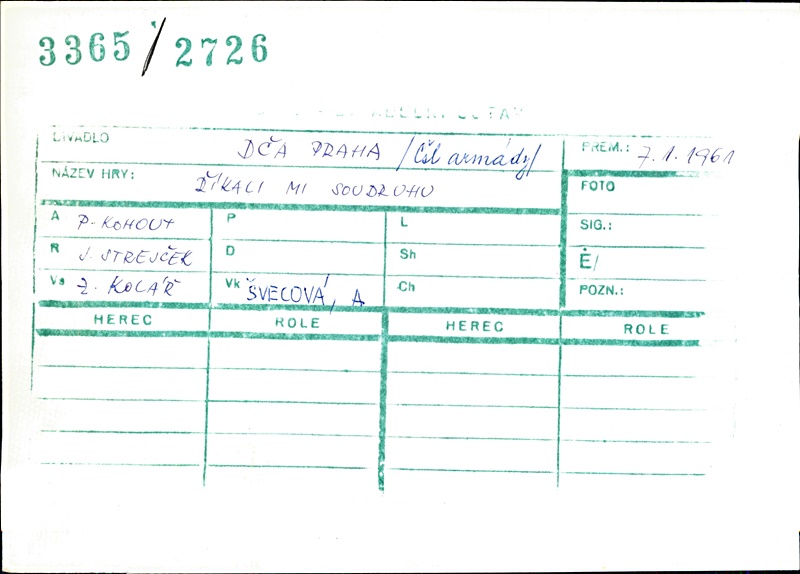 3365/2726
DIVADLO DČA PRAHA /Čsl armády/ PREM.: 7.1.1961
NÁZEV HRY: ŘÍKALI MI SOUDRUHU FOTO
A P. KOHOUT P L SIG.:
R J. STREJČEK D Sh É/
Vs Z. KOLÁŘ Vk ŠVECOVÁ, A Ch POZN.:
HEREC ROLE HEREC ROLE